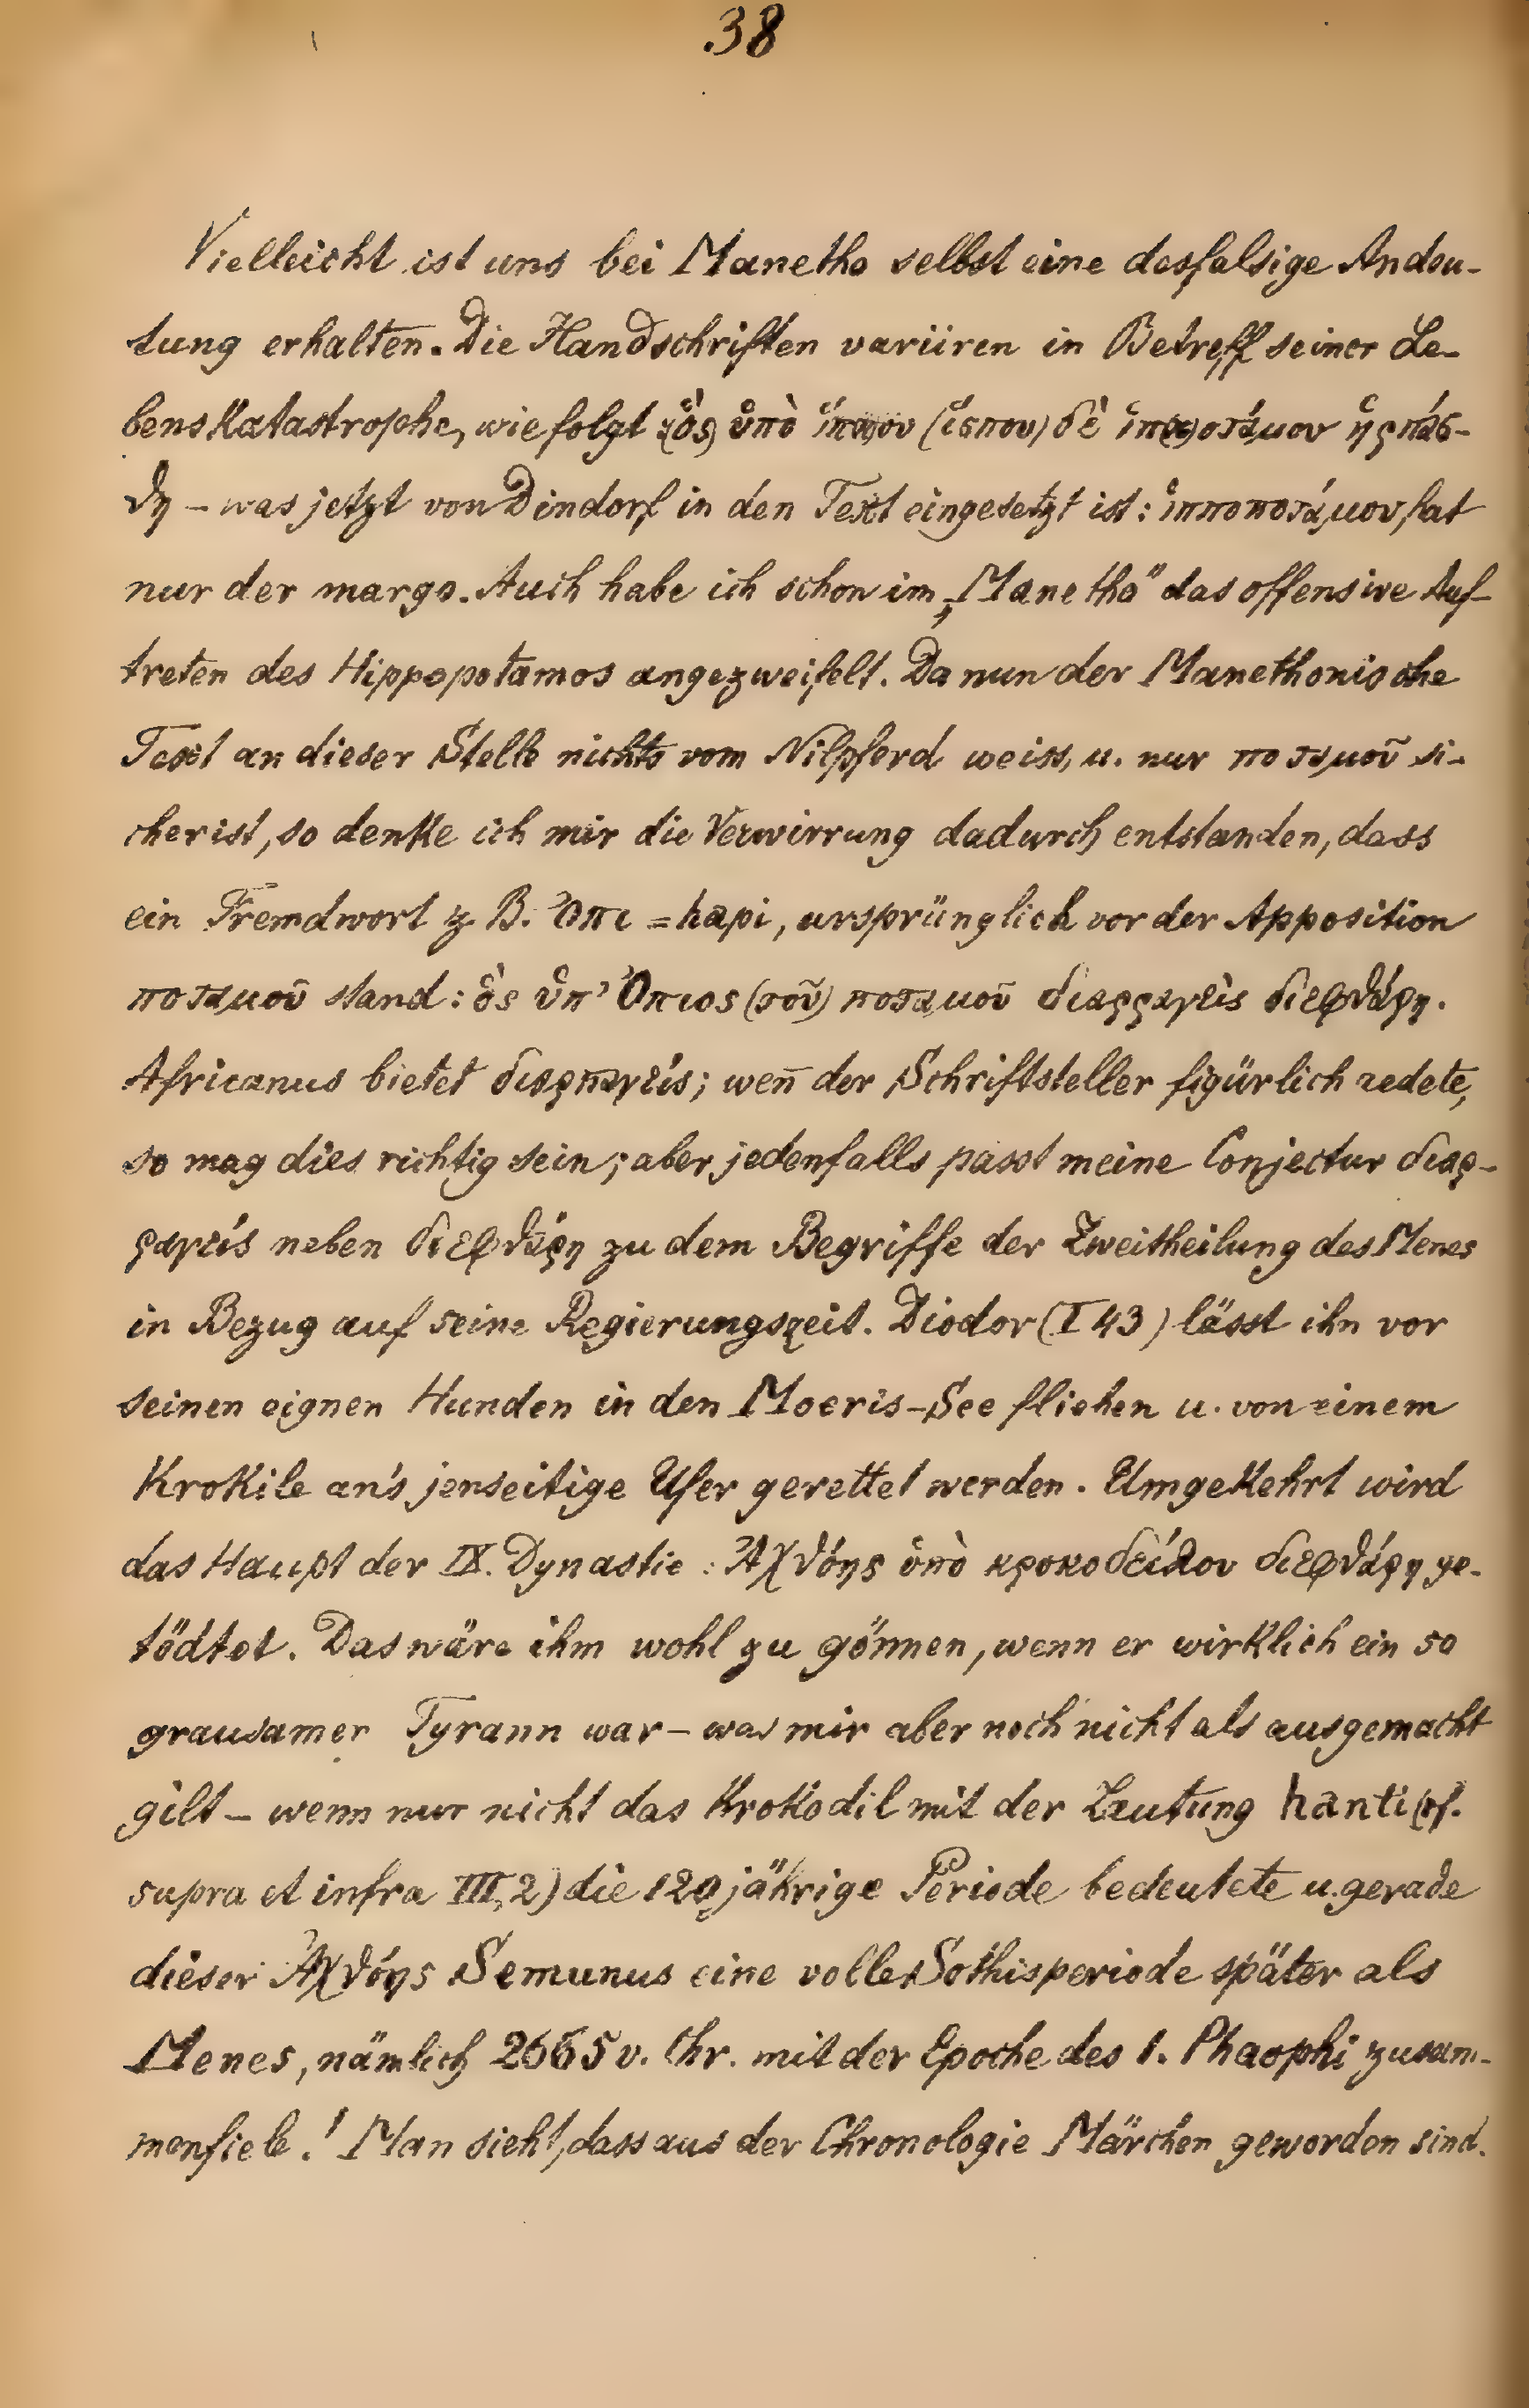 38
Vielleicht ist uns bei Manetho selbst eine desfalsige Andeu-
tung erhalten. Die Handschriften variiren in Betreff seiner Le-
benskatastrophe, wie folgt ὃς ὑπὸ (ἵσπου) δὲ ἡρπάσ-
θη – was jetzt von Dindorf in den Text eingesetzt ist: ἱπποποτάμου, hat
nur der margo. Auch habe ich schon im „Manetho" das offensive Auf-
treten des Hippopotamos angezweifelt. Da nun der Manethonische
Text an dieser Stelle nichts vom Nilpferd weiss, u. nur ποταμοῦ si-
cher ist, so denke ich mir die Verwirrung dadurch entstanden, dass
ein Fremdwort z. B. Ὄπι = hapi, ursprünglich vor der Apposition
ποταμοῦ stand: ὃς ὑπ' Ὄπιος (τοῦ) ποταμοῦ διαρραγεὶς διεφθάρη.
Africanus bietet διαρπαγείς; weñ der Schriftsteller figürlich redete,
so mag dies richtig sein; aber jedenfalls passt meine Conjectur διαρ-
ραγείς neben διεφθάρη zu dem Begriffe der Zweitheilung des Menes
in Bezug auf seine Regierungszeit. Diodor (I 43) lässt ihn vor
seinen eignen Hunden in den Moeris-See fliehen u. von einem
Krokile an's jenseitige Ufer gerettet werden. Umgekehrt wird
das Haupt der IX. Dynastie: Ἀχθόης ὑπὸ κροκοδείλου διεφθάρη ge-
tödtet. Das wäre ihm wohl zu gönnen, wenn er wirklich ein so
grausamer Tyrann war – was mir aber noch nicht als ausgemacht
gilt – wenn nur nicht das Krokodil mit der Lautung hanti (cf.
supra et infra III, 2) die 120jährige Periode bedeutete u. gerade
dieser Ἀχθόης Semunus eine volle Sothisperiode später als
Menes, nämlich 2665 v. Chr. mit der Epoche des 1. Phaophi zusam-
menfiele! Man sieht, dass aus der Chronologie Märchen geworden sind.